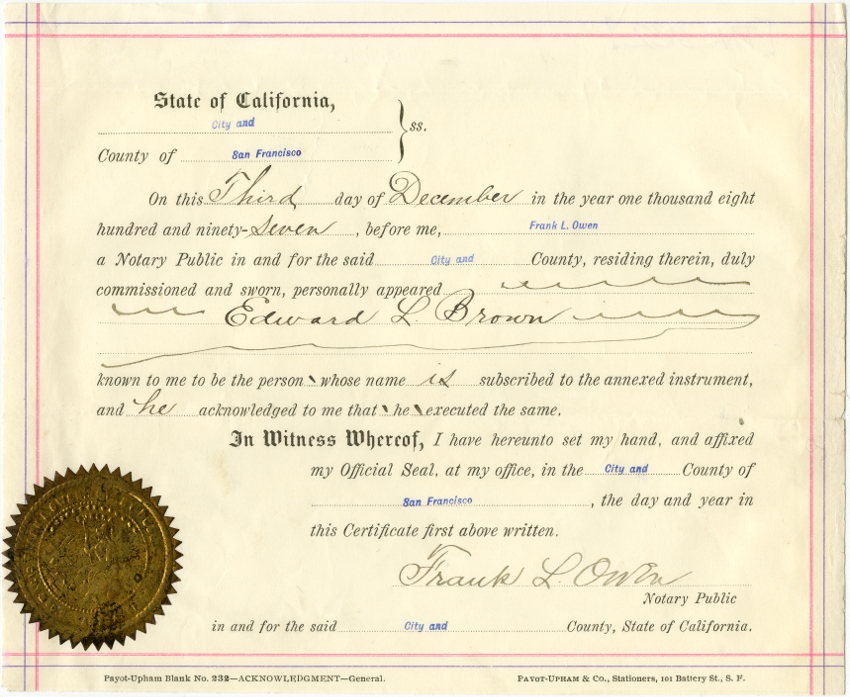 State of California,
City and
ss.
County of San Francisco
On this Third day of December in the year one thousand eight
hundred and ninety-Seven, before me, Frank L. Owen
a Notary Public in and for the said City and County, residing therein, duly
commissioned and sworn, personally appeared
Edward L. Brown
known to me to be the person whose name is subscribed to the annexed instrument,
and he acknowledged to me that he executed the same.
In Witness Whereof, I have hereunto set my hand, and affixed
my Official Seal, at my office, in the City and County of
San Francisco, the day and year in
this Certificate first above written.
Frank L. Owen
Notary Public
in and for the said City and County, State of California.
Payot-Upham Blank No. 232—ACKNOWLEDGMENT—General. PAYOT-UPHAM & CO., Stationers, 101 Battery St., S. F.